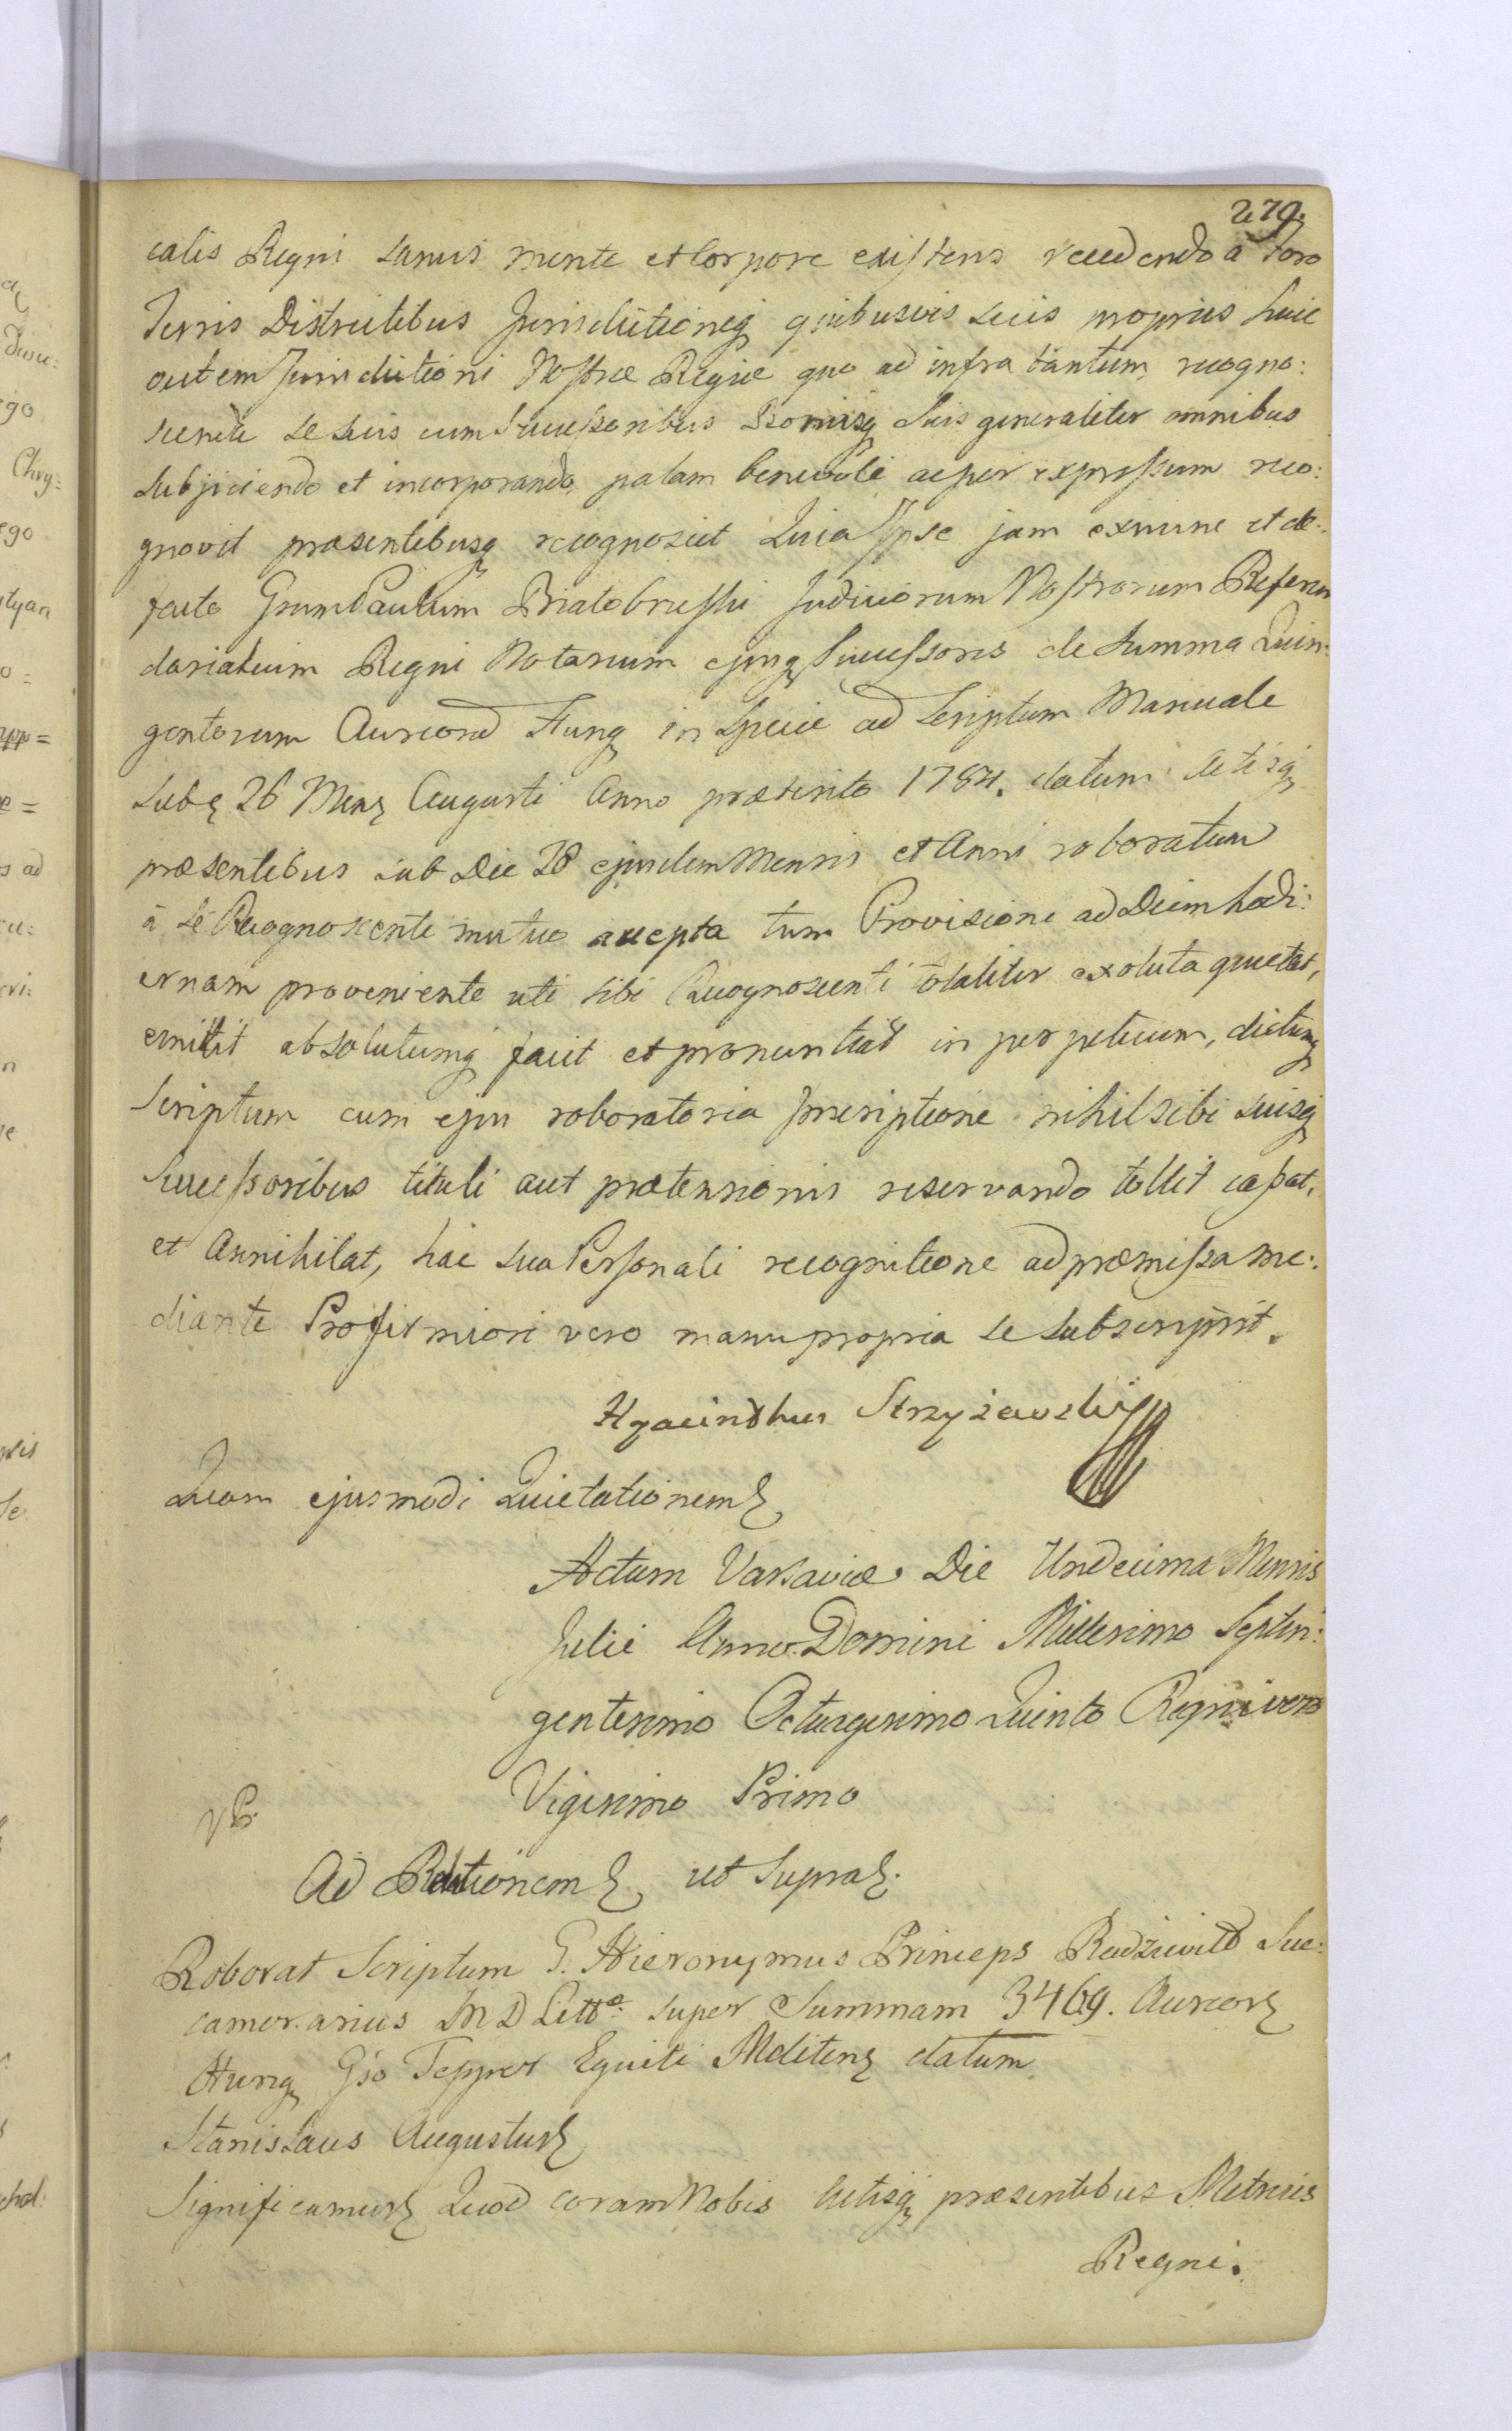 279.
calis Regni sanus mente et Corpore existens recedendo a Foro
Terris Districtibus Jurisdictioneq quibusvis suis propriis huic
autem Jurisdictioni Nostræ Regiæ quo ad infra tantum recogno:
scenda se suis cum Successoribus Bonisq suis generaliter omnibus
subjiciendo et incorporando palam benevole ac per expressum reco:
gnovit præsentibusq recognoscit Quia Ipse jam ex nunc et de
facto Grum Paulum Białobrzeski Judiciorum Nostrorum Referen
dariatuum Regni Notarium ejusq Successores de Summa Quin:
gentorum Aureorũ Hung in Specie ad Scriptum Manuale
sub 26 Mens Augusti Anno præterito 1784. datum Actisq
præsentibus sub Die 28 ejusdem Mensis et Anni roboratum
à se Recognoscente mutuo accepta tum Provisione ad Diem hodi:
ernam proveniente uti sibi Recognoscenti totaliter exoluta quietat,
emittit absolutumq facit et pronuntiat in perpetuum, dictumq
Scriptum cum ejus roboratoria Inscriptione nihil sibi suisq
Successoribus tituli aut prætensionis reservando tollit cassat,
et Annihilat, hac sua Personali recognitione ad præmissa me:
diante Pro firmiori vero manu propria se subscripsit.
Hyacinthus Strzyżewski
Quam ejusmodi Quietationem
Actum Varsaviæ Die Undecima Mensis
Julii Anno Domini Millesimo Septin:
gentesimo Octuagesimo Quinto Regni vero
Vigesimo Primo
Ad Relationem ut Supra.
Roborat Scriptum G. Hieronymus Princeps Radziwiłł Suc:
camerarius M D Litt: super Summam 3469. Aureor
Hung Gso Tepper Equiti Melitens datum
Stanislaus Augustus
Significamus Quod coram Nobis Actisq præsentibus Metrices
Regni.